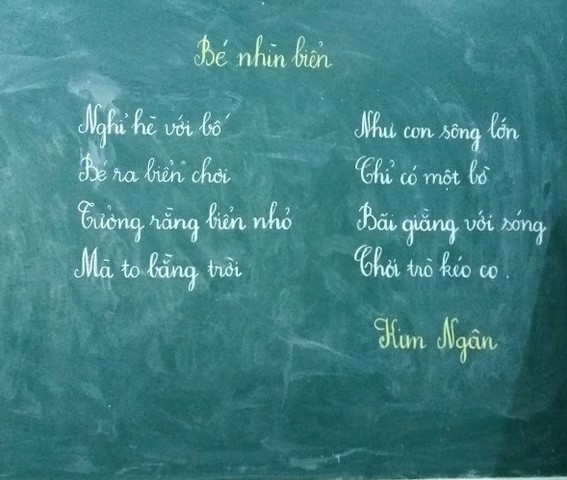 Bé nhìn biển
Nghỉ hè với bố
Bé ra biển chơi
Tưởng rằng biển nhỏ
Mà to bằng trời
Như con sông lớn
Chỉ có một bờ
Bãi giằng với sóng
Chơi trò kéo co.
Kim Ngân